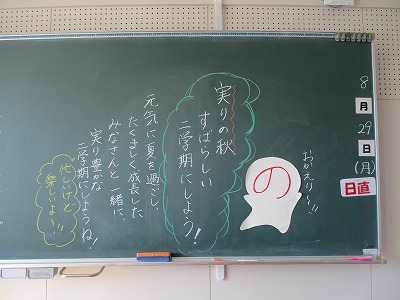 8
月
29
日
(月)
日直
おかえり〜!!
の
実りの秋
すばらしい
二学期にしよう!
元気に夏を過ごし、
たくましく成長した
みなさんと一緒に、
実り豊かな
二学期にしようね!
忙しいけど
楽しいよ〜!!